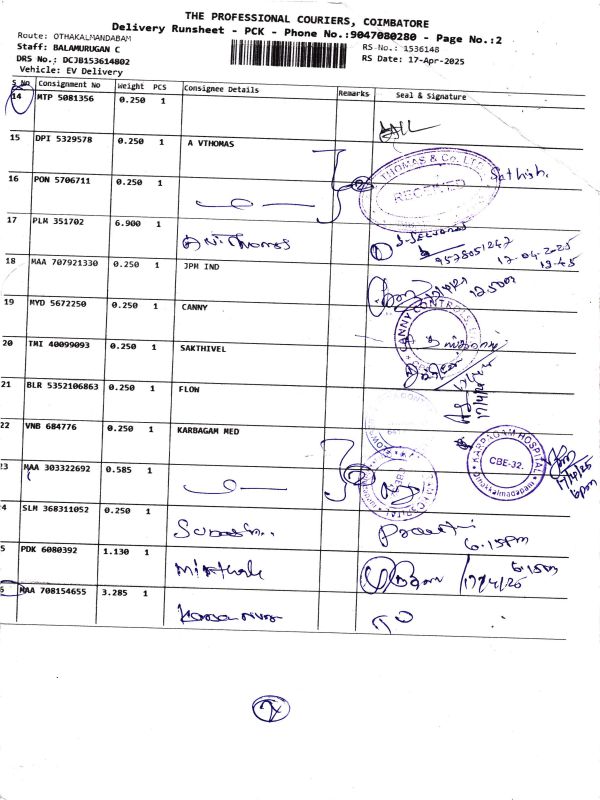 THE PROFESSIONAL COURIERS, COIMBATORE
Delivery Runsheet - PCK - Phone No.:9047080280 - Page No.:2
Route: OTHAKALMANDABAM
Staff: BALAMURUGAN C
RS No.: 1536148
DRS No.: DCJB153614802
RS Date: 17-Apr-2025
Vehicle: EV Delivery
S No Consignment No Weight PCS Consignee Details Remarks Seal & Signature
14 MTP 5081356 0.250 1
15 DPI 5329578 0.250 1 A VTHOMAS
THOMAS & Co. LTD
RECEIVED
Sathish.
16 PON 5706711 0.250 1
17 PLM 351702 6.900 1
A.V. Thomas
9578051247
17-04-2025
13.45
18 MAA 707921330 0.250 1 JPM IND
19 MYD 5672250 0.250 1 CANNY
CANNY CONTROLS
20 TMI 40099093 0.250 1 SAKTHIVEL
21 BLR 5352106863 0.250 1 FLOW
17/4/25
22 VNB 684776 0.250 1 KARBAGAM MED
KARPAGAM HOSPITAL
CBE-32.
17/4/25
6pm
23 MAA 303322692 0.585 1
4 SLM 368311052 0.250 1
6.15pm
5 PDK 6080392 1.130 1
17/4/25
6.15pm
6 MAA 708154655 3.285 1